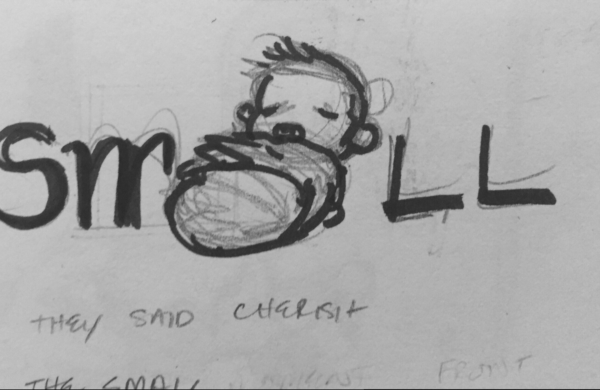 SmALL
THEY SAID CHERISH
THE SMALL
FRONT